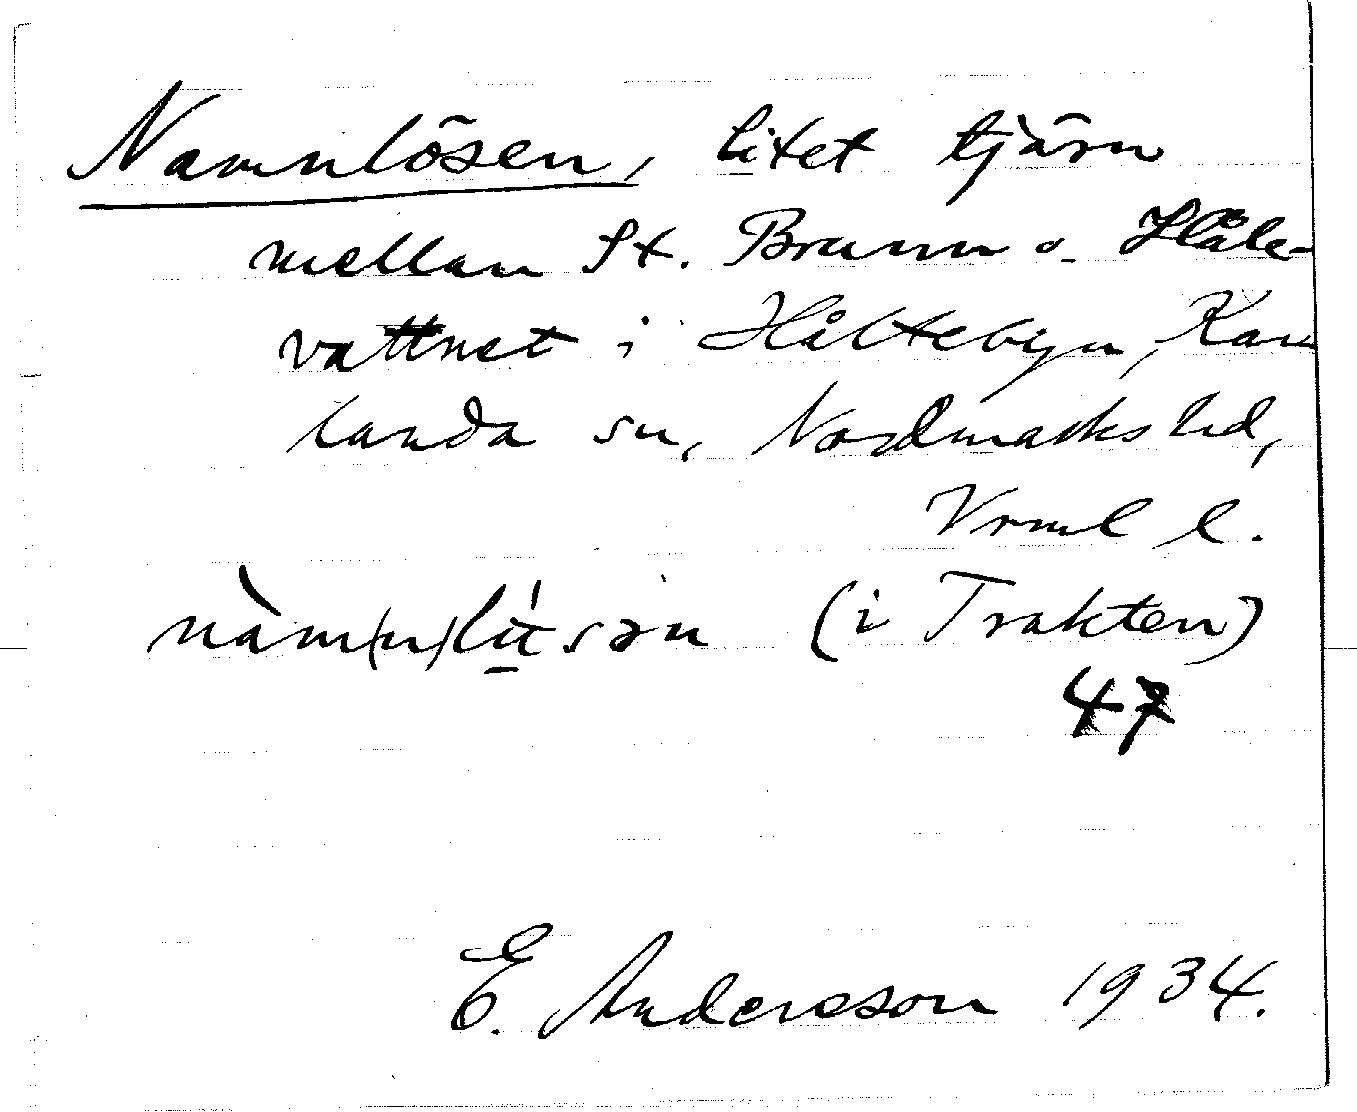 Namnlösen, litet tjärn
mellan St. Brunn o. Håle-
vattnet i Håltebyn, Kar
landa sn, Nordmarks hd,
Vrml l.
nàm(n)lú̱sən (i Trakten)
47
E. Andersson 1934.